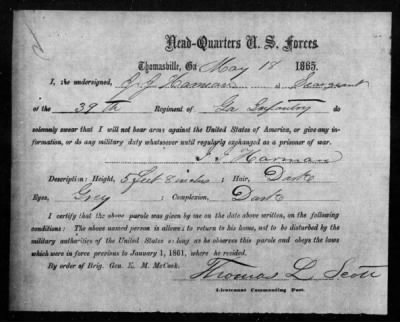 Head-Quarters U. S. Forces
Thomasville, Ga May 18 1865.
I, the undersigned, J J Harman a Seargeant
of the 39th Regiment of Ga Infantry do
solemnly swear that I will not bear arms against the United States of America, or give any in-
formation, or do any military duty whatsoever until regularly exchanged as a prisoner of war.
J. J. Harman
Description: Height, 5 feet 8 inches; Hair, Dark
Eyes, Grey; Complexion, Dark
I certify that the above parole was given by me on the date above written, on the following
conditions: The above named person is allowed to return to his home, not to be disturbed by the
military authorities of the United States so long as he observes this parole and obeys the laws
which were in force previous to January 1, 1861, where he resided.
By order of Brig. Gen. E. M. McCook.
Thomas L Scott
Lieutenant Commanding Post.